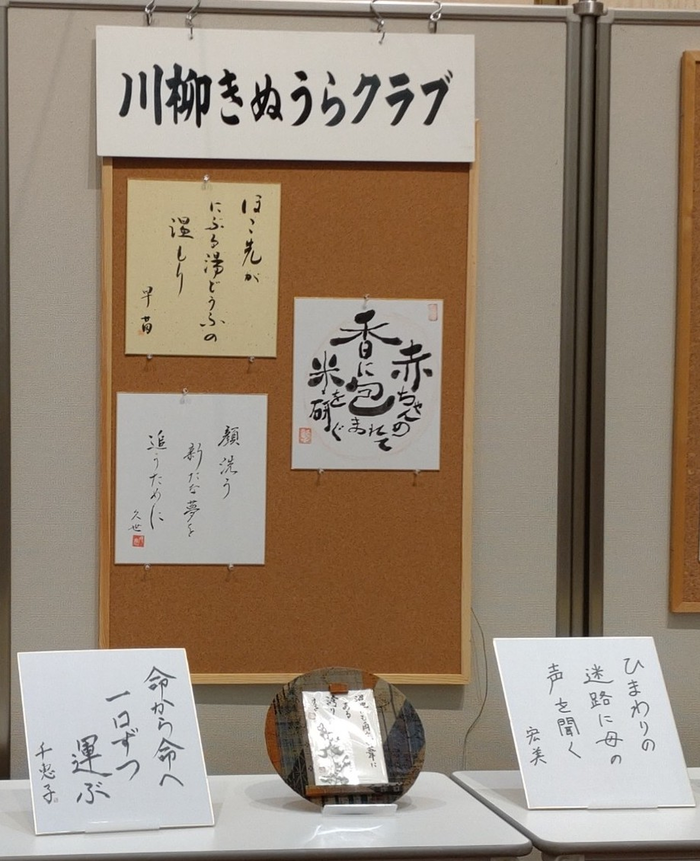 川柳きぬうらクラブ
ほこ先が
にぶる湯どうふの
温もり
早苗
赤ちゃんの
香に包まれて
米を研ぐ
顔洗う
新たな夢を
追うために
久世
命から命へ
一日ずつ
運ぶ
千恵子
ある
ひまわりの
迷路に母の
声を聞く
宏美